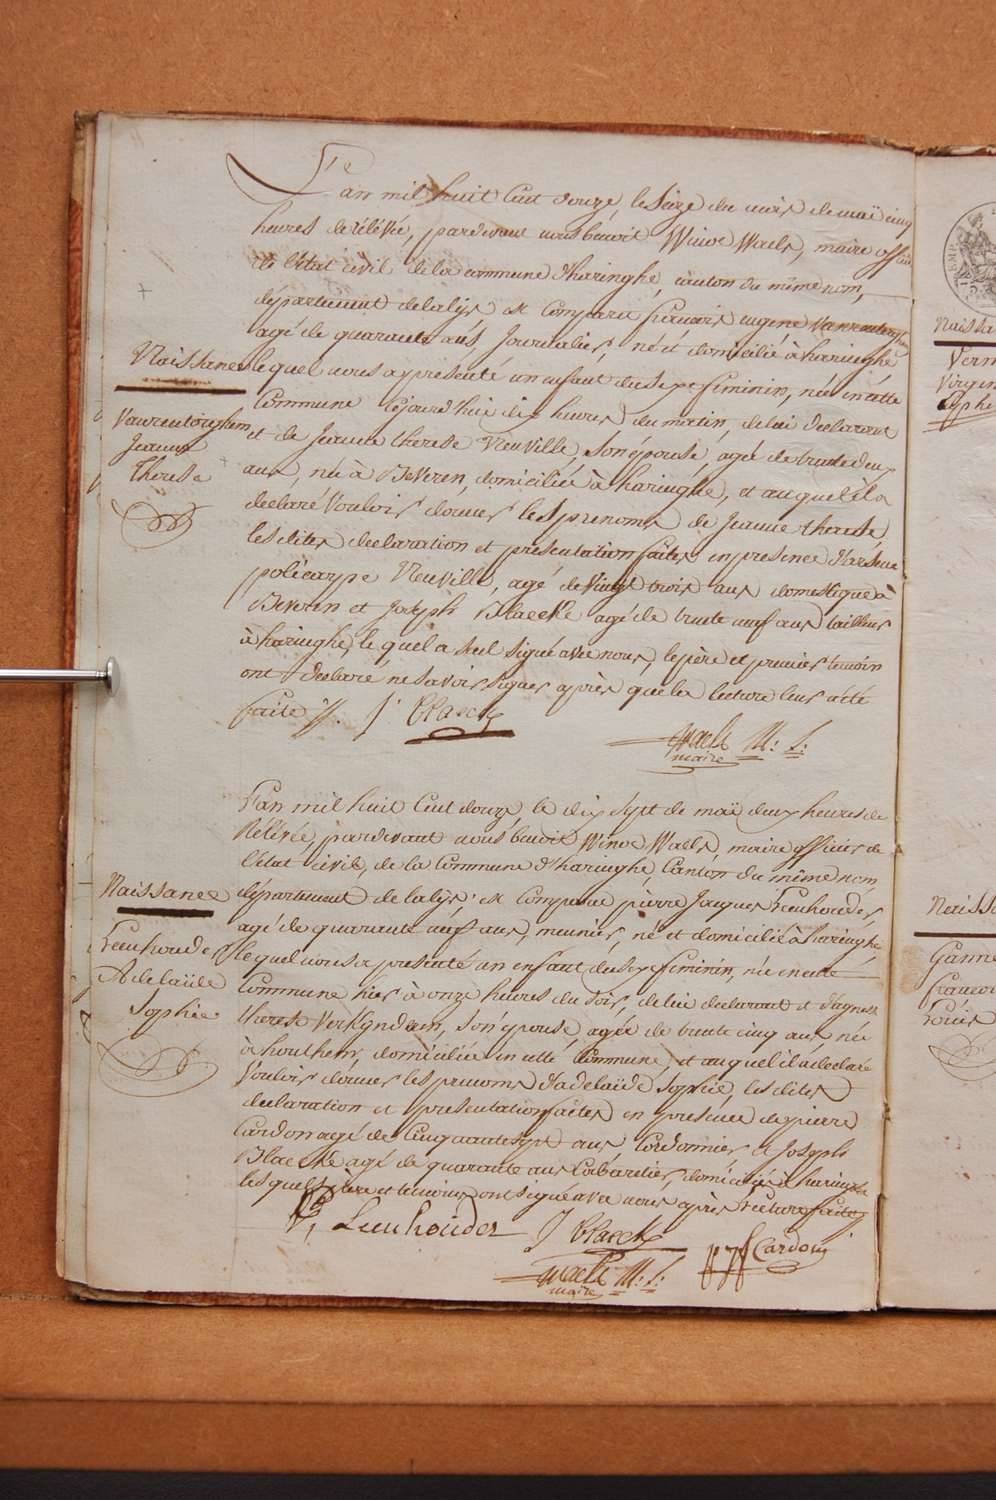 L'an mil huit Cent douze, le Seize du mois de maï cinq
heures de rélévée, pardevant nous benoit Winoc Waels, maire officier
de l'état civil de la commune d'haringhe, canton du même nom,
département de la lijs, est comparu francois eugene Vanrentorghem
agé de quarante ans, Journalier, né et domicilié à haringhe
Naissance
lequel nous a présenté un enfant du sexe féminin, née en cette
Vanrentorghem
Jeanne
Therese
Commune cejourd'hui dix heures du matin, de lui déclarant
et de Jeanne therese Neuville, son épouse, agée de trente deux
ans, née à Beveren, domiciliée à haringhe, et auquel il a
declaré Vouloir donner les prenoms de Jeanne therese,
les dites declaration et présentation faites en présence d'arsene
policarpe Neuville, agé de vingt trois ans domestique à
Beveren et Joseph Blaecke agé de trente neuf ans tailleur
à haringhe, le quel a seul signé avec nous, le père et premier temoin
ont declaré ne savoir signer après que la lecture leur a été
faite //. J: Blaecke
Waels M: S:
maire
L'an mil huit Cent douze, le dix sept de maï deux heures de
Rélévée, pardevant nous benoit Winoc Waels, maire officier de
l'état civil, de la Commune d'haringhe, Canton du même nom,
Naissance
département de la lijs: est comparu pierre Jacques Leenhouder,
agé de quarante neuf ans, meunier, né et domicilié à haringhe,
Leenhouder
Adelaïde
Sophie
lequel nous a présenté un enfant du sexe féminin, née en cette
Commune hier à onze heures du soir, de lui declarant et d'agnes
therese Verkyndern, son épouse, agée de trente cinq ans née
à houthem, domiciliée en cette Commune, et auquel il a declaré
Vouloir donner les prenoms d'adelaïde Sophie, les dites
declaration et présentation faites en présence de pierre
Cardon agé de Cinquante sept ans, Cordonnier et Joseph
Blaecke agé de quarante ans Cabaretier, domiciliés à haringhe
les quels père et temoins ont signé avec nous après lecture faite
Leenhouder J Blaecke
Cardon
Waels M: S:
maire
Naissa
Verm
Virgen
Sophi
Naissa
Ganne
francoi
Louis